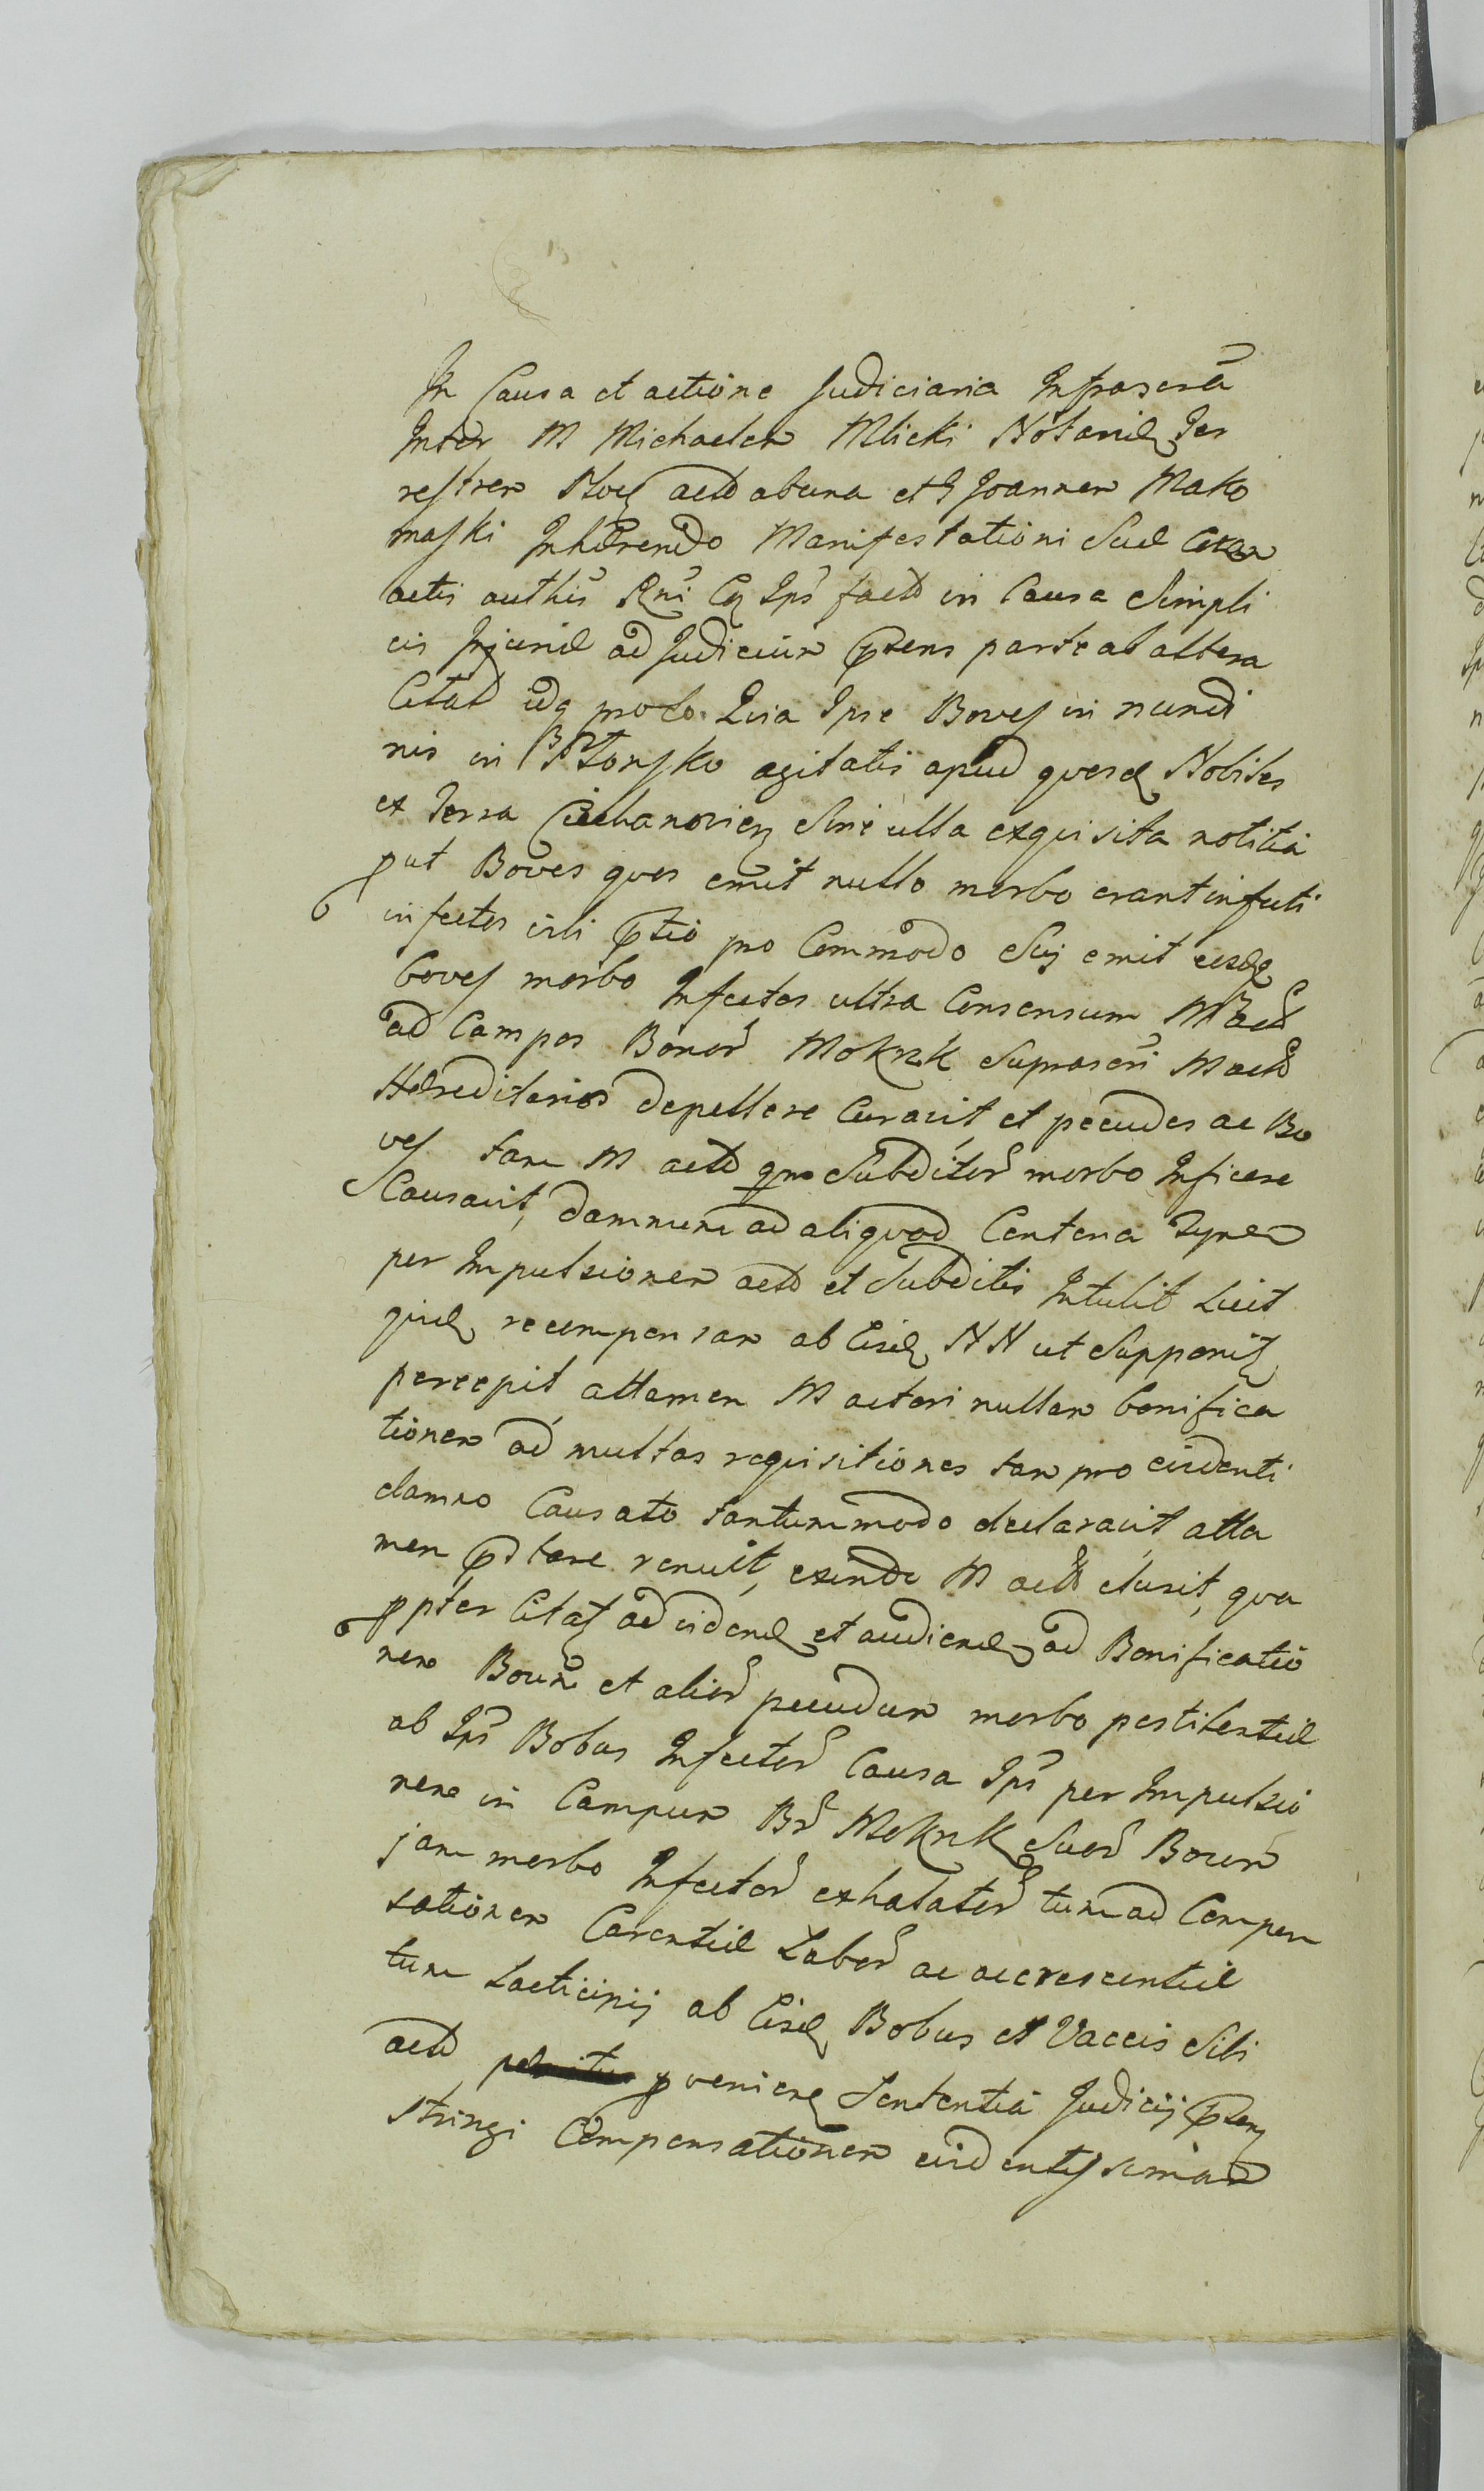 In Causa et actione Judiciaria Infrascrã
Inter M Michaelem Mlicki Notariũ Ter
restrem Ploc̃ act̃ ab una et G Joannem Mako
maski Inhærendo Manifestationi Suæ Coram
actis auth̃is R̃ni C̃q Ips̃ fact̃ in Causa Simpli
cis Injuriæ ad Judicium p̃sens parte ab altera
Citat̃ idq̃ pro eo Quia Ipse Boves in nundi
nis in Płonsko agitatis apud quosd̃ Nobiles
ex Terra Ciechanovien̄ Sine ulla exquisita notitiã
put Boves quos emit nullo morbo erant infecti
infectos vili p̃tio pro Commodo Suj emit eosdẽ
boves morbo Infectos ultra Consensum M act̃
ad Campos Bonor̃ Mokrzk Suprascr̃i M act̃
Hæreditarior̃ depellere Curavit, et pecudes ac Bo
ves tam M act̃ qm̃ Subditor̃ morbo Inficere
Causavit, damnum ad aliquod Centena
per Impulsionem act̃ et Subditis Intulit Licet
quid̃ recompensam ab Eisd̃ NN ut Supponit̃
percepit attamen M actori nullam bonifica
tionem ad multas requisitiones tam pro evidenti
damno Causato tantummodo declaravit, atta
men p̃stare renuit, exinde M act̃ elusit, qua
ppter Citat̃ ad videnđ et audienđ ad Bonificatiõ
nem Boum̃ et alior̃ pecudum morbo pestilentiæ
ab Ips̃ Bobus Infector̃ Causa Ips̃ per Impulsio
nem in Campum B̃r Mokrzk Suor̃ Boum̃
jam morbo Infector̃ exhalator̃ tum ad Compen
sationem Carentiæ Labor̃ ac accrescentiæ
tum Lacticinij ab Eisd̃ Bobus et Vaccis Sibi
act̃ pvenienđ Sententiã Judicij p̃sen̄
stringi Compensationem evidentissimam